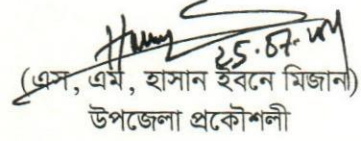 25.07.
(এস, এম, হাসান ইবনে মিজান)
উপজেলা প্রকৌশলী